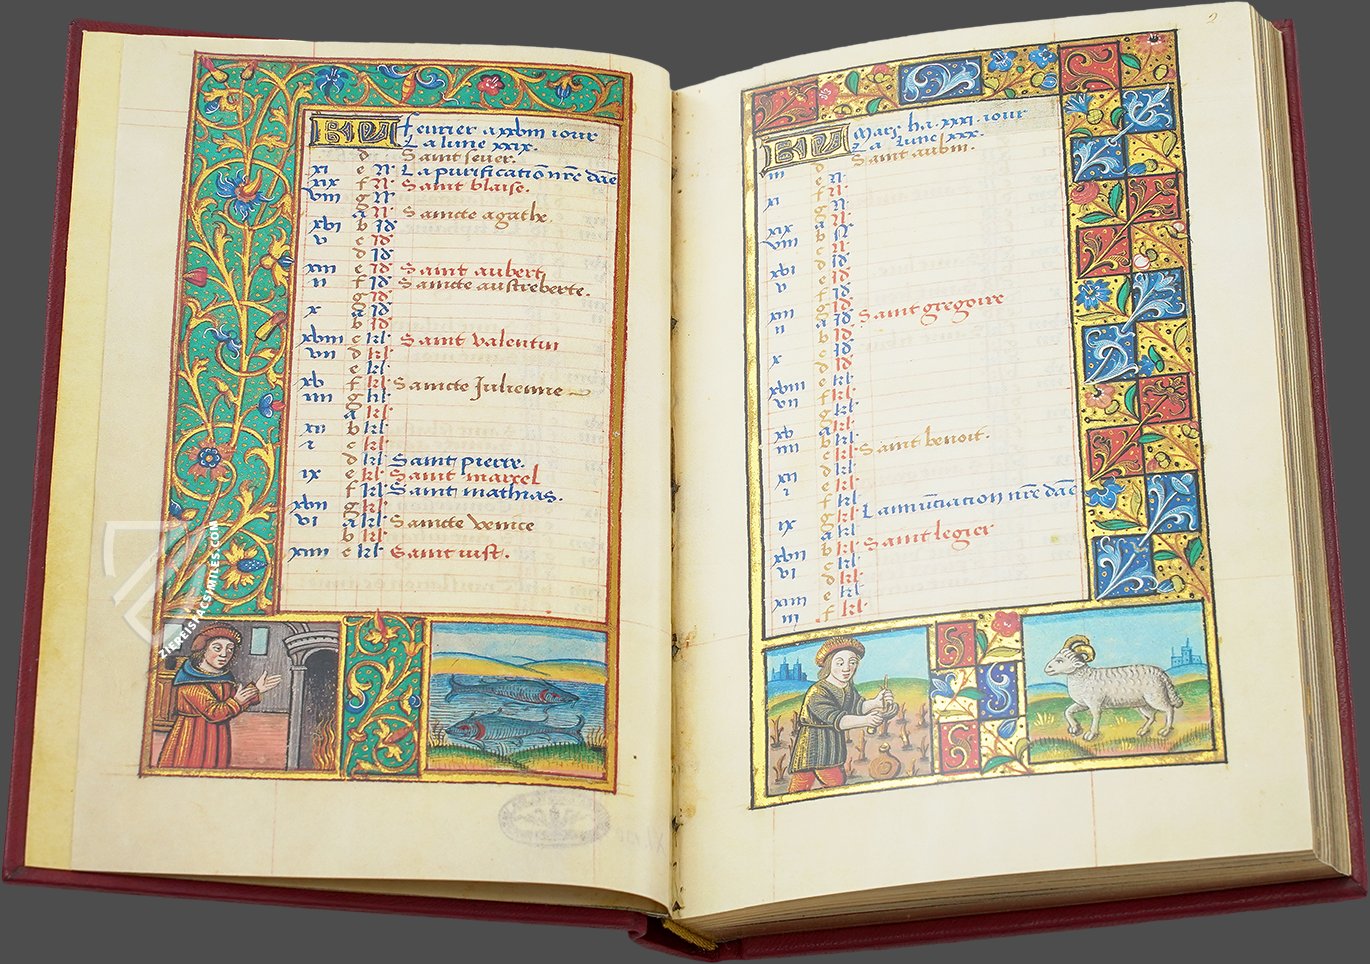 KL feurier a xxviii iour
La lune xxix.
d Saint seuer.
xi e N La purification nre dae
xix f N Saint blaise.
viii g N
a N Saincte agathe
xvi b Id
v c Id
d Id
xiii e Id Saint aubert
ii f Id Saincte austreberte.
g Id
x a Id
b Id
xviii c kl Saint valentin
vii d kl
e kl
xv f kl Saincte Julienne
iiii g kl
a kl
xii b kl
i c kl
d kl Saint pierre.
ix e kl Saint marcel
f kl Saint mathias.
xvii g kl
vi a kl Saincte venice
b kl
xiiii c kl Saint iust.
2
KL Mars ha xxxi iour
La lune xxx.
iii d Saint aubin.
e N
xi f N
g N
xix a N
viii b N
c N
xvi d Id
v e Id
f Id
xiii g Id Saint gregoire
ii a Id
b Id
x c Id
d Id
xviii e kl
vii f kl
g kl
xv a kl
iiii b kl Saint benoit.
c kl
xii d kl
i e kl
f kl Lannuciation nre dae
ix g kl
a kl
xvii b kl Saint legier
vi c kl
d kl
xiiii e kl
iii f kl
ZIEREISFACSIMILES.COM